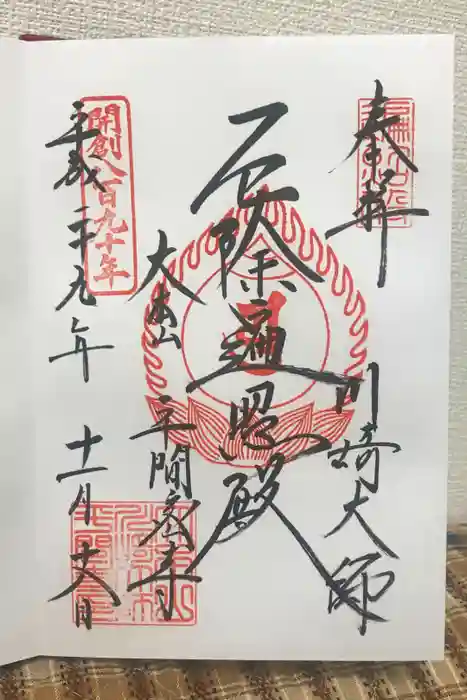 奉拝
川崎大師
厄除遍照殿
大本山
平間寺
開創八百九十年
平成二十九年
十一月廿八日